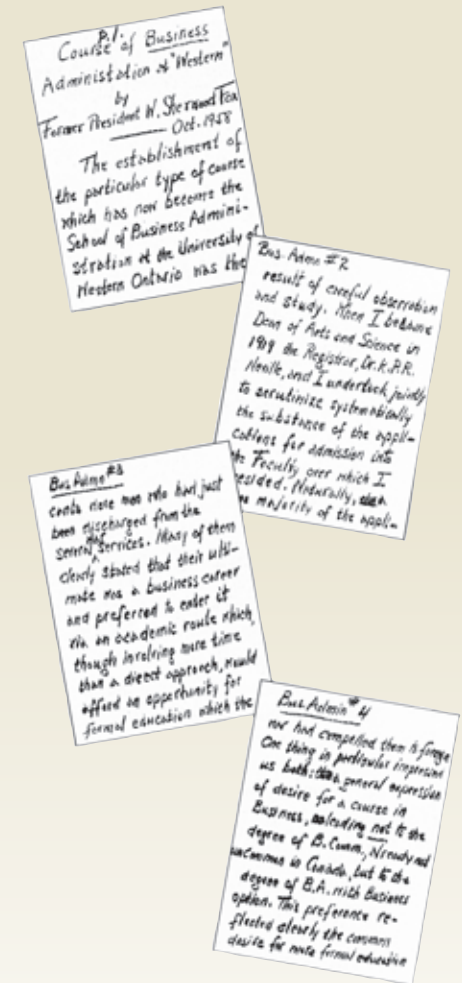 P.1.
Course of Business
Administration at "Western"
by
Former President W. Sherwood Fox
Oct. 1958
The establishment of
the particular type of course
which has now become the
School of Business Admini-
stration at the University of
Western Ontario was the
Bus. Admn #2
result of careful observation
and study. When I became
Dean of Arts and Science in
1919 the Registrar, Dr. K.P.R.
Neville, and I undertook jointly
to scrutinize systematically
the substance of the appli-
cations for admission into
the Faculty over which I
presided. Naturally,
the majority of the appli-
Bus. Admn #3
cants were men who had just
been discharged from the
several services. Many of them
clearly stated that their ulti-
mate was a business career
and preferred to enter it
via an academic route which,
though involving more time
than a direct approach, would
afford an opportunity for
formal education which the
Bus. Admin #4
war had compelled them to forego
One thing in particular impressed
us both: general expression
of desire for a course in
Business, leading not to the
degree of B. Comm., already not
uncommon in Canada, but to the
degree of B.A. with Business
option. This preference re-
flected clearly the common
desire for more formal education